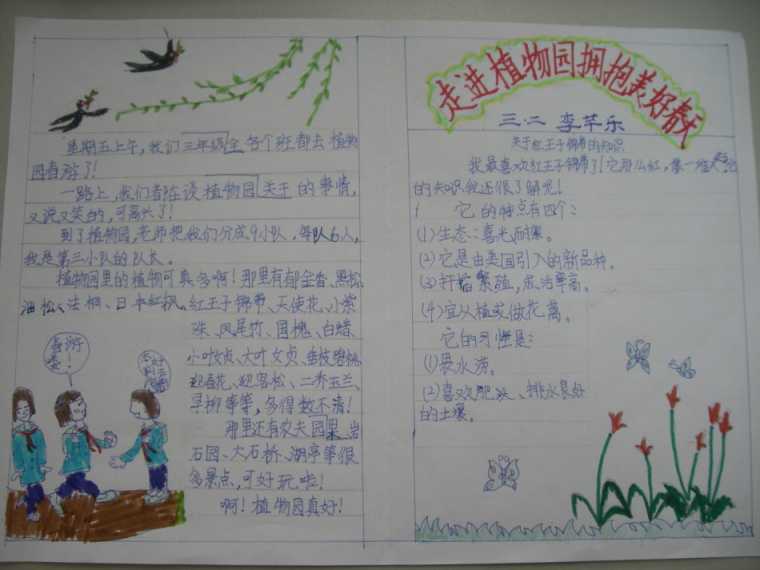 星期五上午，我们三年级全各个班都去植物
园春游了！
一路上，我们都在谈植物园关于的事情，
又说又笑的，可高兴了！
到了植物园，老师把我们分成9小队，每队6人，
我是第三小队的队长。
植物园里的植物可真多啊！那里有郁金香、黑松、
油松、法桐、日本红枫、红王子锦带、天使花、小紫
珠、凤尾竹、国槐、白蜡
小叶女贞、大叶女贞、垂枝碧桃、
迎春花、迎客松、二乔玉兰、
旱柳等等，多得数不清！
那里还有农夫园果、岩
石园、大石桥、湖亭等很
多景点，可好玩啦！
啊！植物园真好！
春游
走进植物园拥抱美好春天
三·二 李芊乐
关于红王子锦带的知识
我最喜欢红王子锦带了！它那么红，像一
的知识我还很了解呢！
它的特点有四个：
(1)生态：喜光耐寒。
(2)它是由美国引入的新品种。
(3)扦插繁殖，成活率高。
(4)宜丛植或做花篱。
它的习惯是：
(1)畏水涝。
(2)喜欢肥沃、排水良好
的土壤。